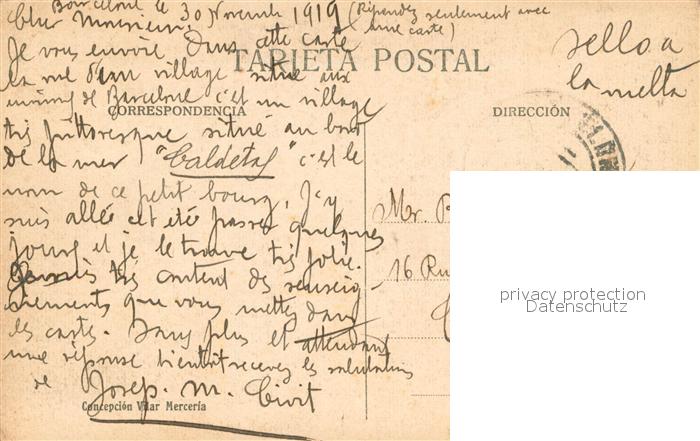 Barcelone le 30 Novembre 1919 (Répondez seulement avec
une carte)
Cher Monsieur:
Je vous envoie dans cette carte
la vue d'un village situé aux
environs de Barcelone c'est un village
très pittoresque situé au bord
de la mer "Caldetas" c'est le
nom de ce petit bourg, J'y
suis allée cet été passer quelques
jours et je le trouve très jolie.
très content des renseig-
nements que vous mettez dans
les cartes. Sans plus et attendant
une réponse bientôt recevez les salutations
de Josep. M. Civit
TARJETA POSTAL
CORRESPONDENCIA
DIRECCIÓN
sello a
la vuelta
Mr.
16 Ru
Concepción Vilar Mercería
privacy protection
Datenschutz